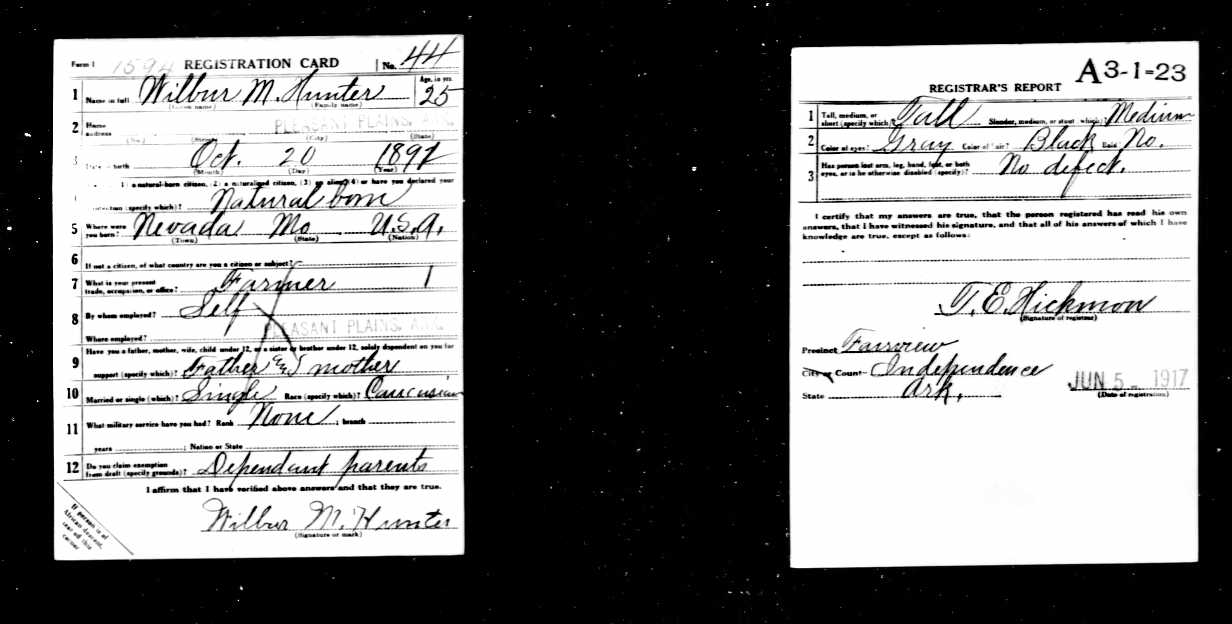 Form 1 1594 REGISTRATION CARD No. 44
1 Name in full Wilbur M. Hunter Age, in yrs. 25
(Given name) (Family name)
2 Home address PLEASANT PLAINS, ARK.
(No.) (Street) (City) (State)
3 Date of birth Oct. 20 1891
(Month) (Day) (Year)
(1) a natural-born citizen, (2) a naturalized citizen, (3) an alien, (4) or have you declared your
intention (specify which)? Natural born
5 Where were you born? Nevada Mo U.S.A.
(Town) (State) (Nation)
6 If not a citizen, of what country are you a citizen or subject?
7 What is your present trade, occupation, or office? Farmer 1
8 By whom employed? Self
Where employed? PLEASANT PLAINS, ARK.
9 Have you a father, mother, wife, child under 12, or a sister or brother under 12, solely dependent on you for
support (specify which)? Father & mother
10 Married or single (which)? Single Race (specify which)? Caucasian
11 What military service have you had? Rank None ; branch
years ; Nation or State
12 Do you claim exemption from draft (specify grounds)? Dependant parents
I affirm that I have verified above answers and that they are true.
Wilbur M. Hunter
(Signature or mark)
If person is of
African descent,
tear off this
corner
A3-1=23
REGISTRAR'S REPORT
1 Tall, medium, or short (specify which)? Tall Slender, medium, or stout (which)? Medium
2 Color of eyes? Gray Color of hair? Black Bald? No.
3 Has person lost arm, leg, hand, foot, or both eyes, or is he otherwise disabled (specify)? No defect.
I certify that my answers are true, that the person registered has read his own
answers, that I have witnessed his signature, and that all of his answers of which I have
knowledge are true, except as follows:
T. E. Hickmon
(Signature of registrar)
Precinct Fairview
City or County Independence
State Ark.
JUN 5 1917
(Date of registration)